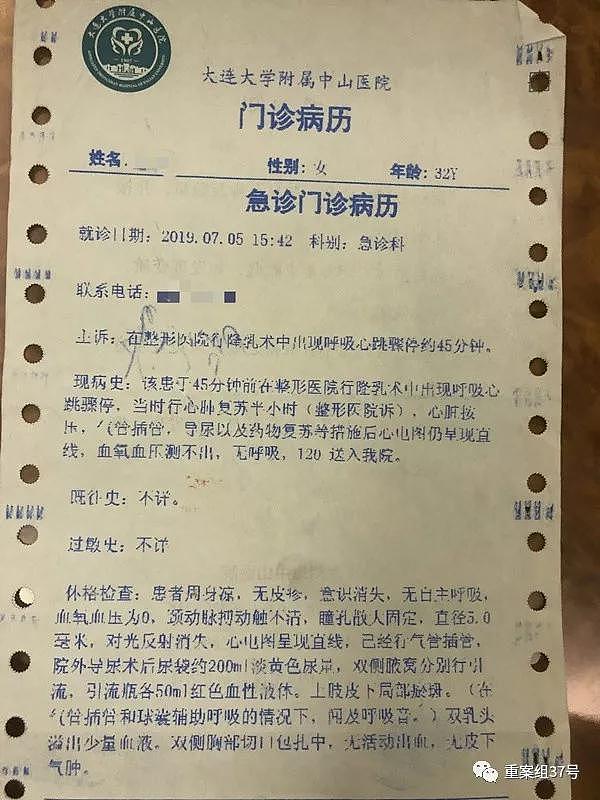 大连大学附属中山医院
门诊病历
姓名: 性别: 女 年龄: 32Y
急诊门诊病历
就诊日期: 2019.07.05 15:42 科别: 急诊科
联系电话:
主诉: 在整形医院行隆乳术中出现呼吸心跳骤停约45分钟。
现病史: 该患于45分钟前在整形医院行隆乳术中出现呼吸心
跳骤停, 当时行心肺复苏半小时(整形医院诉), 心脏按
压, 气管插管, 导尿以及药物复苏等措施后心电图仍呈现直
线, 血氧血压测不出, 无呼吸, 120 送入我院。
既往史: 不详。
过敏史: 不详
体格检查: 患者周身凉, 无皮疹, 意识消失, 无自主呼吸,
血氧血压为0, 颈动脉搏动触不清, 瞳孔散大固定, 直径5.0
毫米, 对光反射消失, 心电图呈现直线, 已经行气管插管,
院外导尿术后尿袋约200ml淡黄色尿量, 双侧腋窝分别行引
流, 引流瓶各50ml红色血性液体。上肢皮下局部瘀斑。(在
气管插管和球囊辅助呼吸的情况下, 闻及呼吸音。)双乳头
溢出少量血液。双侧胸部切口包扎中, 无活动出血, 无皮下
气肿。
重案组37号